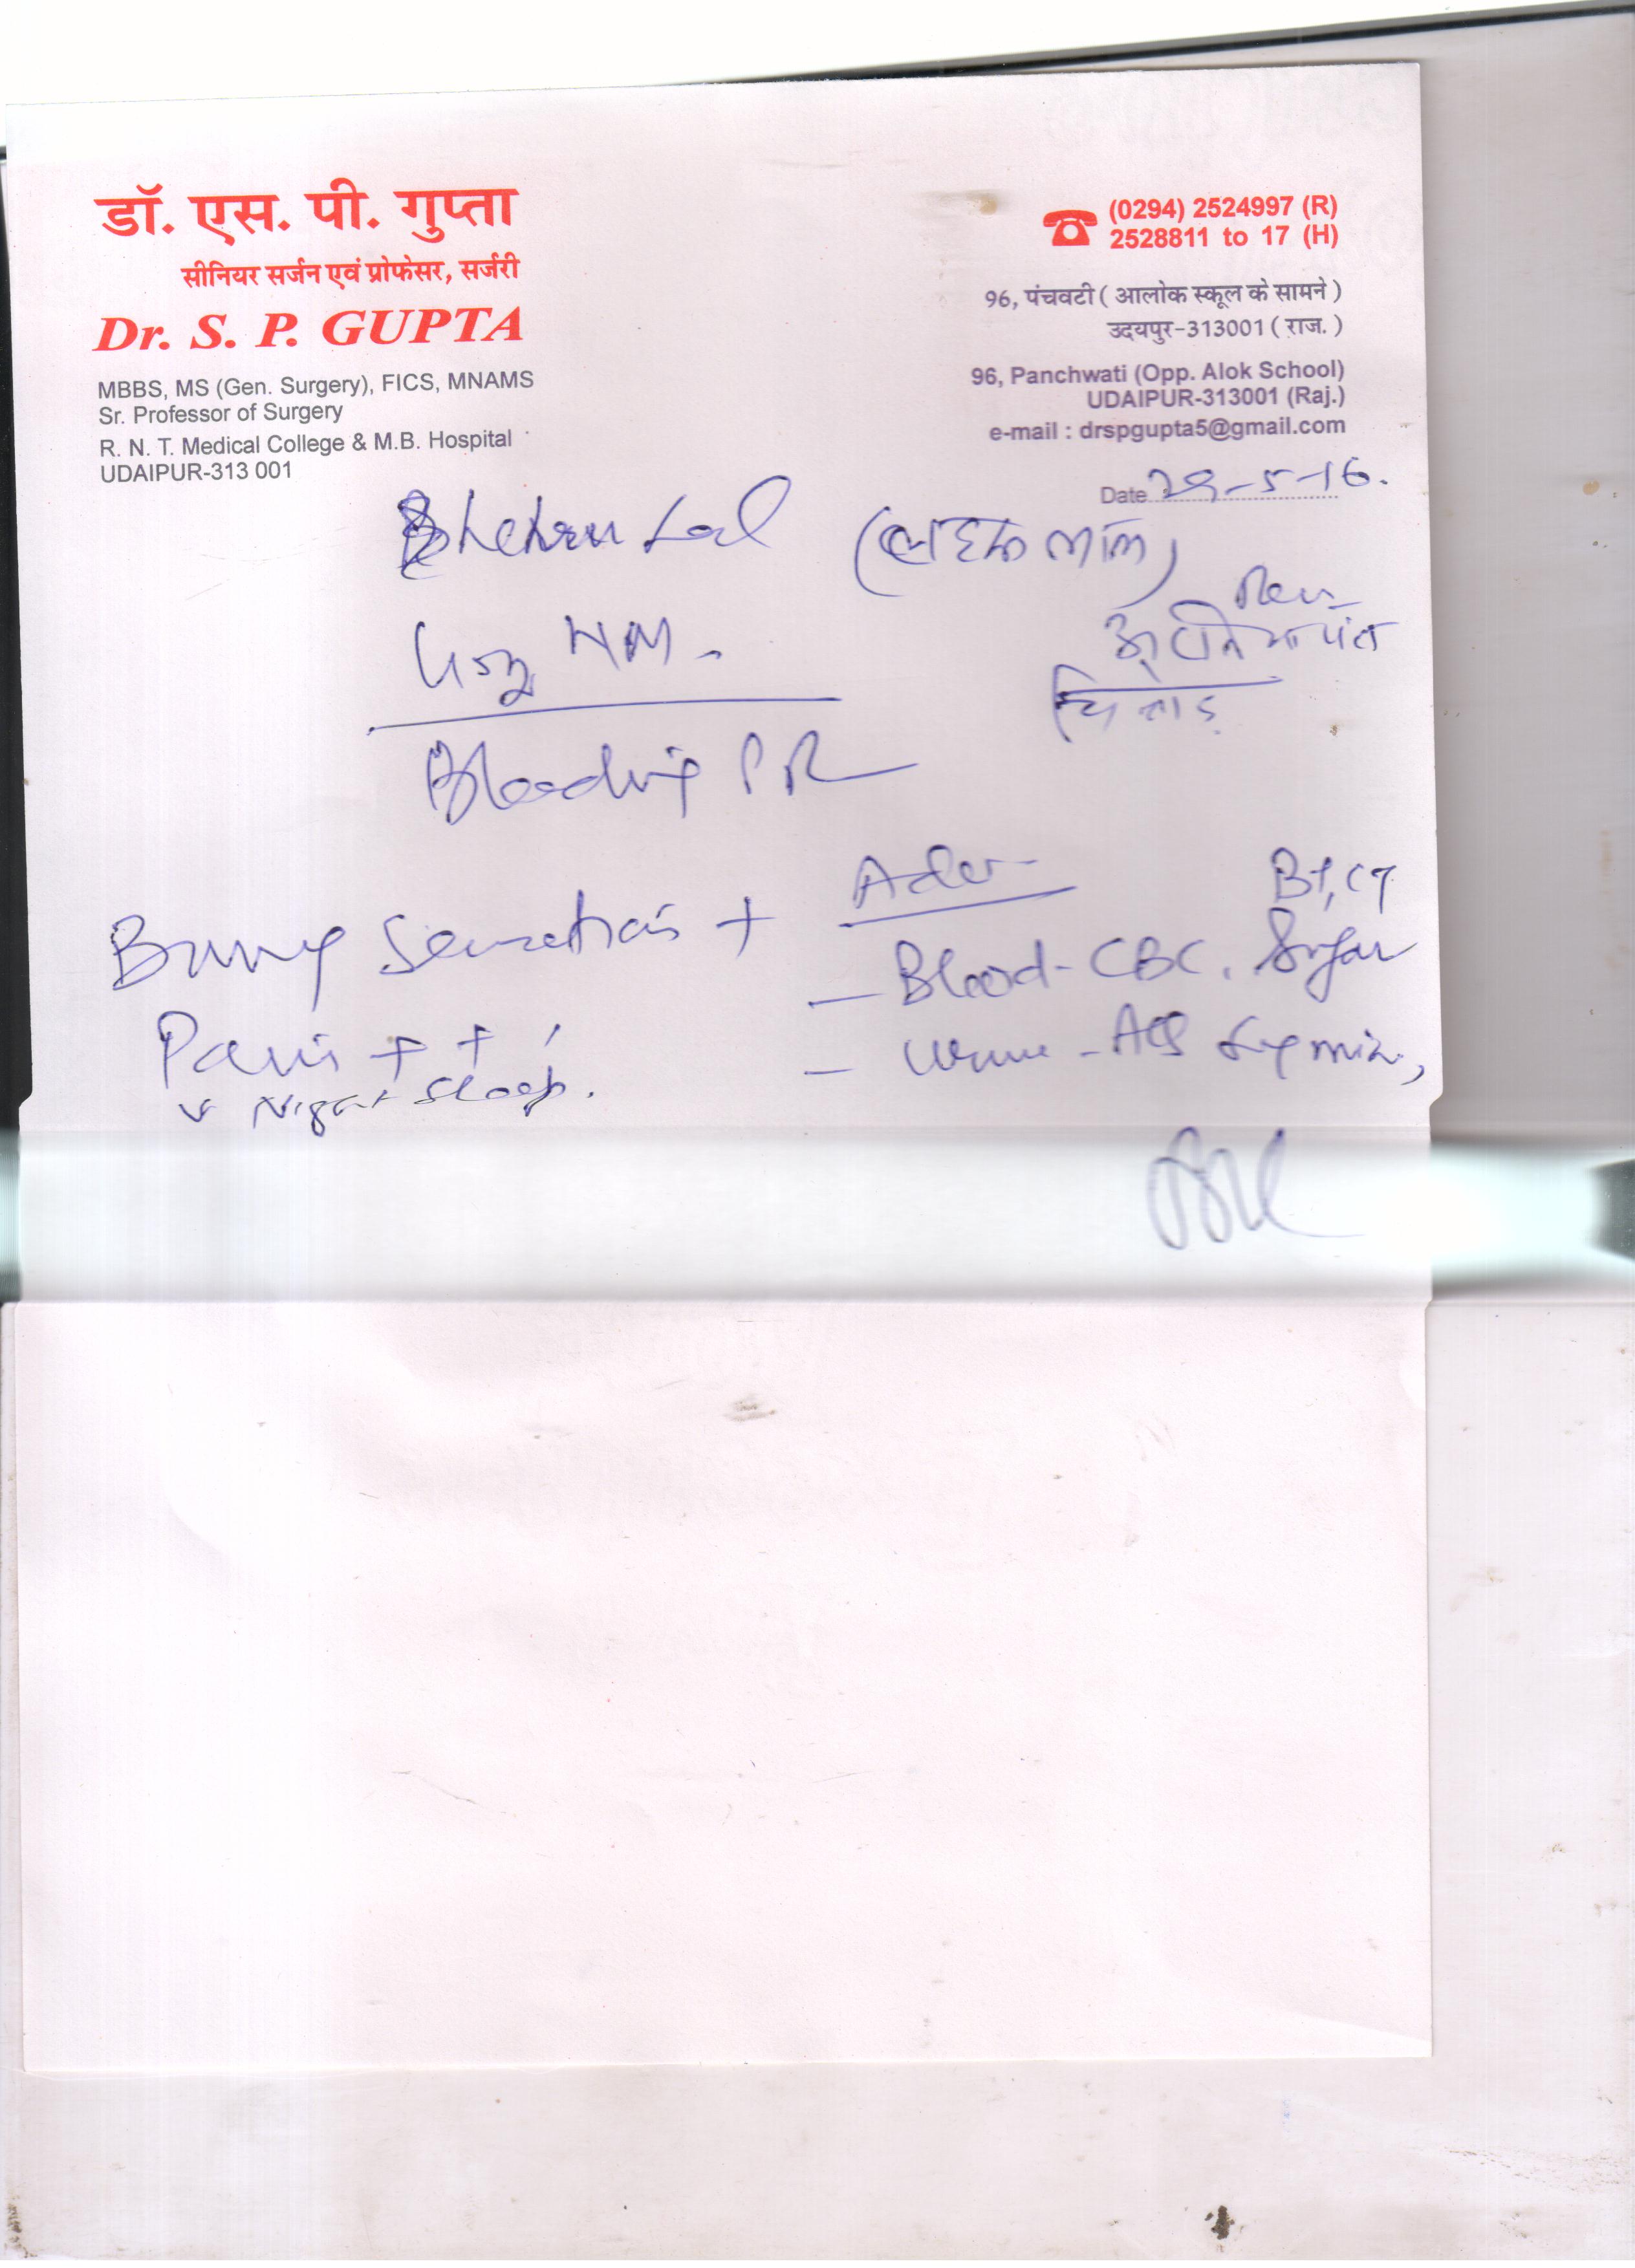 डॉ. एस. पी. गुप्ता
सीनियर सर्जन एवं प्रोफेसर, सर्जरी
Dr. S. P. GUPTA
MBBS, MS (Gen. Surgery), FICS, MNAMS
Sr. Professor of Surgery
R. N. T. Medical College & M.B. Hospital
UDAIPUR-313 001
(0294) 2524997 (R)
2528811 to 17 (H)
96, पंचवटी ( आलोक स्कूल के सामने )
उदयपुर-313001 ( राज. )
96, Panchwati (Opp. Alok School)
UDAIPUR-313001 (Raj.)
e-mail : drspgupta5@gmail.com
Date 29-5-16.
Lal
Bleeding PR
Pain + +
Night Sleep.
BT, CT
- Blood - CBC, Sugar
- Urine -